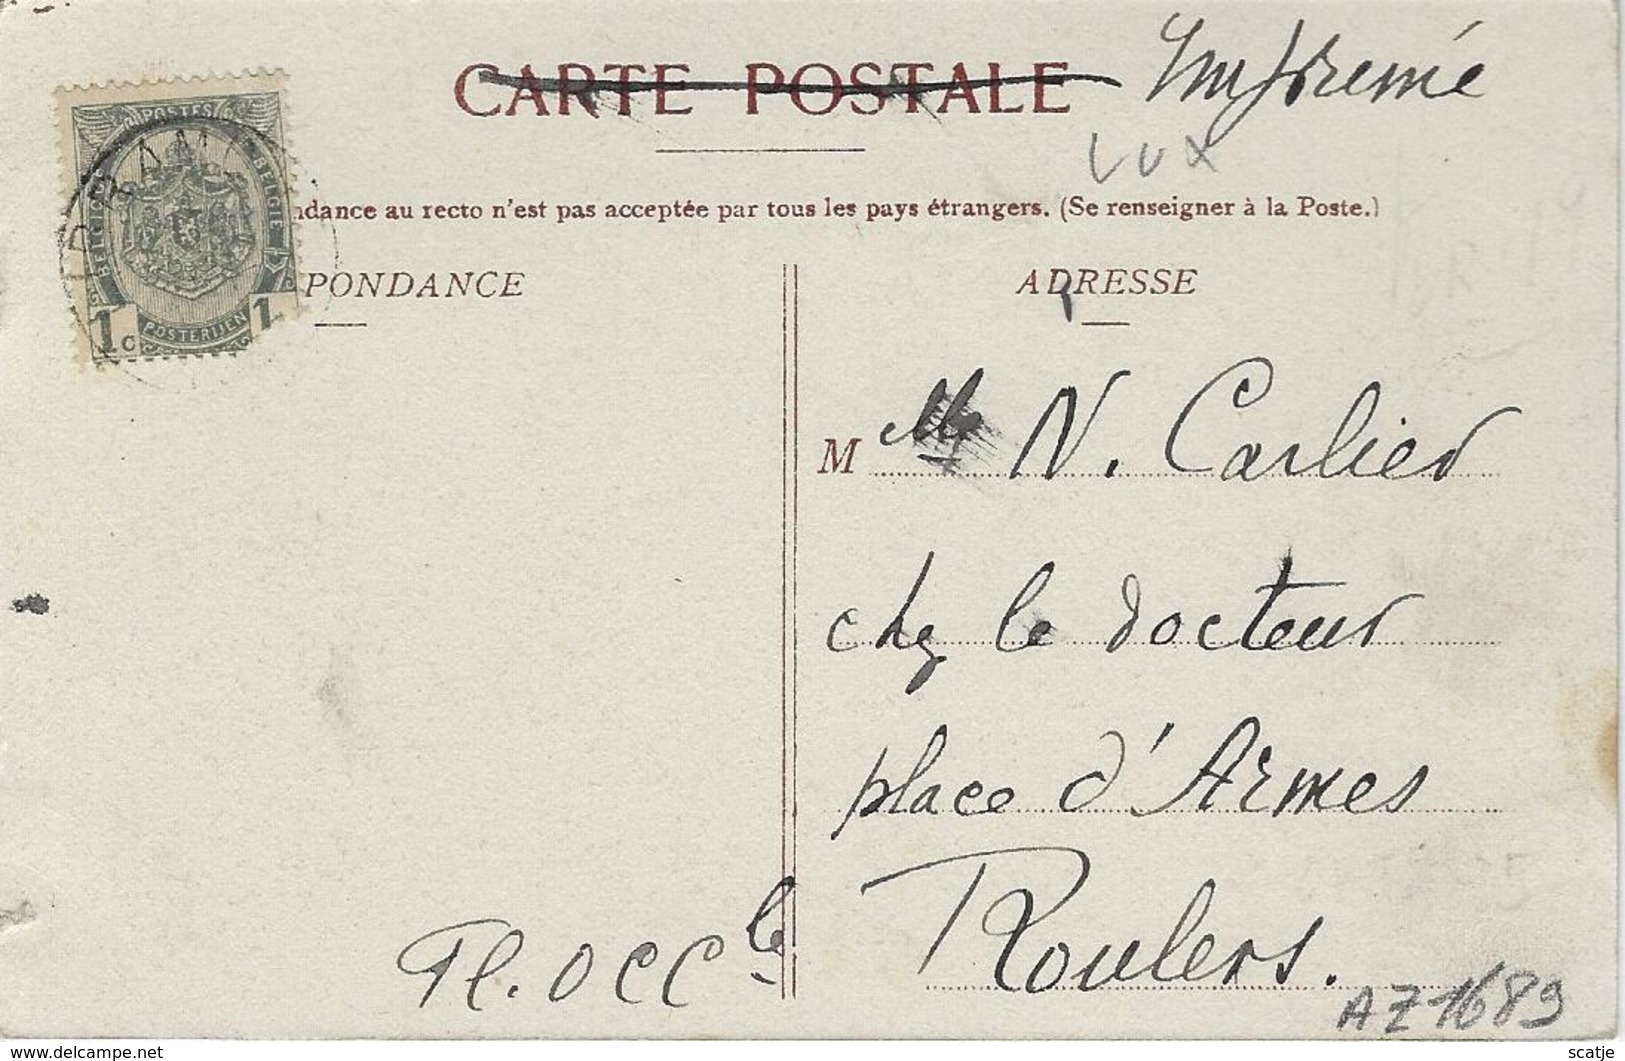 CARTE POSTALE Imprimé
LUX
POSTES
BELGIQUE
BELGIË
1c
POSTERIJEN
1
ndance au recto n'est pas acceptée par tous les pays étrangers. (Se renseigner à la Poste.)
PONDANCE
ADRESSE
M elle N. Carlier
chez le docteur
place d'Armes
Roulers.
Fl. Occle
AZ1689
https://www.delcampe.net
scatje